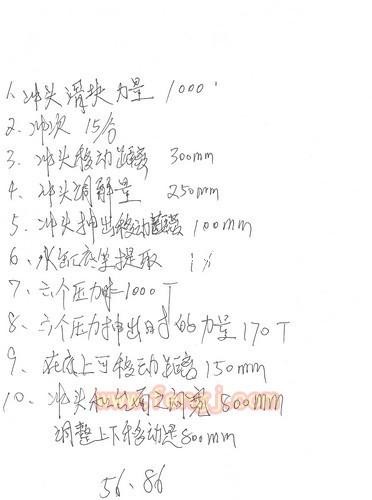 1、冲头滑块力量 1000
2、冲次 15/分
3、冲头移动距离 300mm
4、冲头调解量 250mm
5、冲头抽出移动距离 100mm
6、
7、六个压力 1000 T
8、六个压力抽出时的力量 170 T
9、在底上可移动距离 150mm
10、冲头和台面之间 800mm
调整上下移动是 800mm
56、86